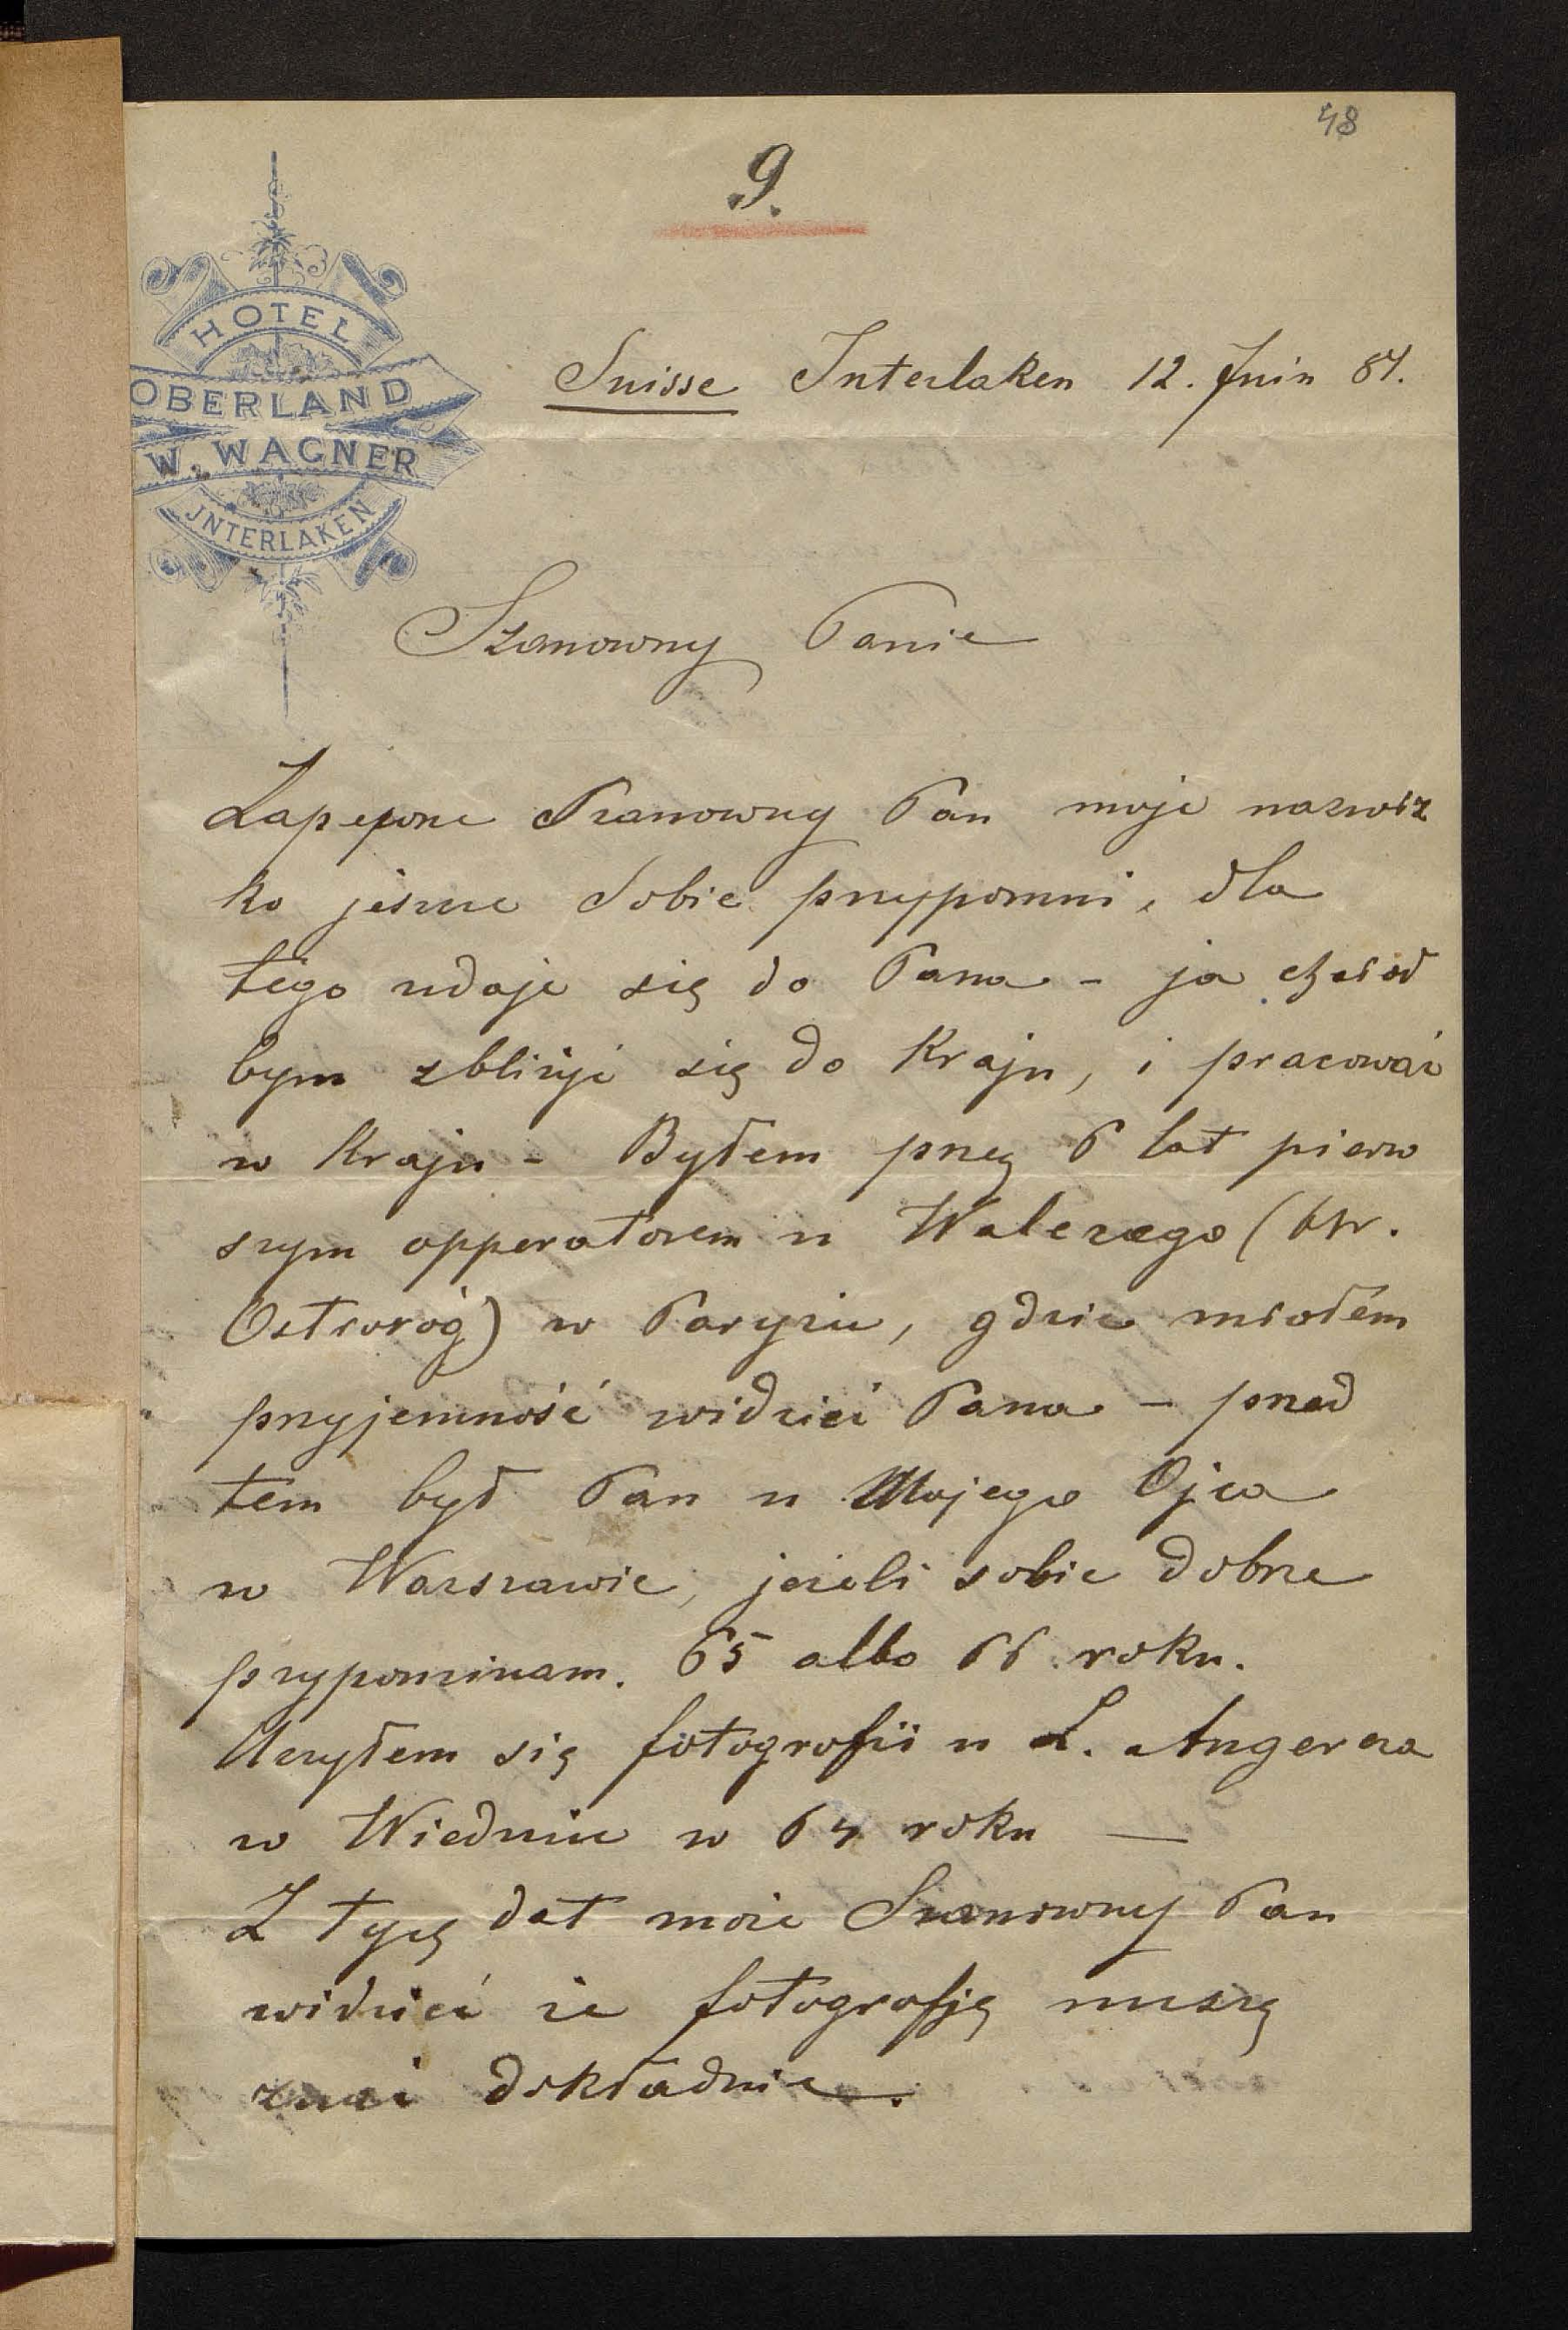 48
9.
HOTEL
OBERLAND
W. WAGNER
JNTERLAKEN
Suisse Interlaken 12. Juin 84.
Szanowny Panie
Zapewne Szanowny Pan moje nazwiz
ko jeszcze Sobie przypomni, dla
tego udaje się do Pana - ja chciał
bym zbliżyć się do Kraju, i pracować
w Kraju - Byłem przez 6 lat pierw
szym opperatorem u Walerego (hr.
Ostroróg) w Paryżu, gdzie miałem
przyjemność widzieć Pana - przed
tem był Pan u Mojego Ojca
w Warszawie, jeżeli sobie dobrze
przypominam. 65 albo 66 roku.
Uczyłem się fotografii u L. Angerera
w Wiedniu w 64 roku —
Z tych dat może Szanowny Pan
widzieć że fotografję muszę
znać dokładnie.